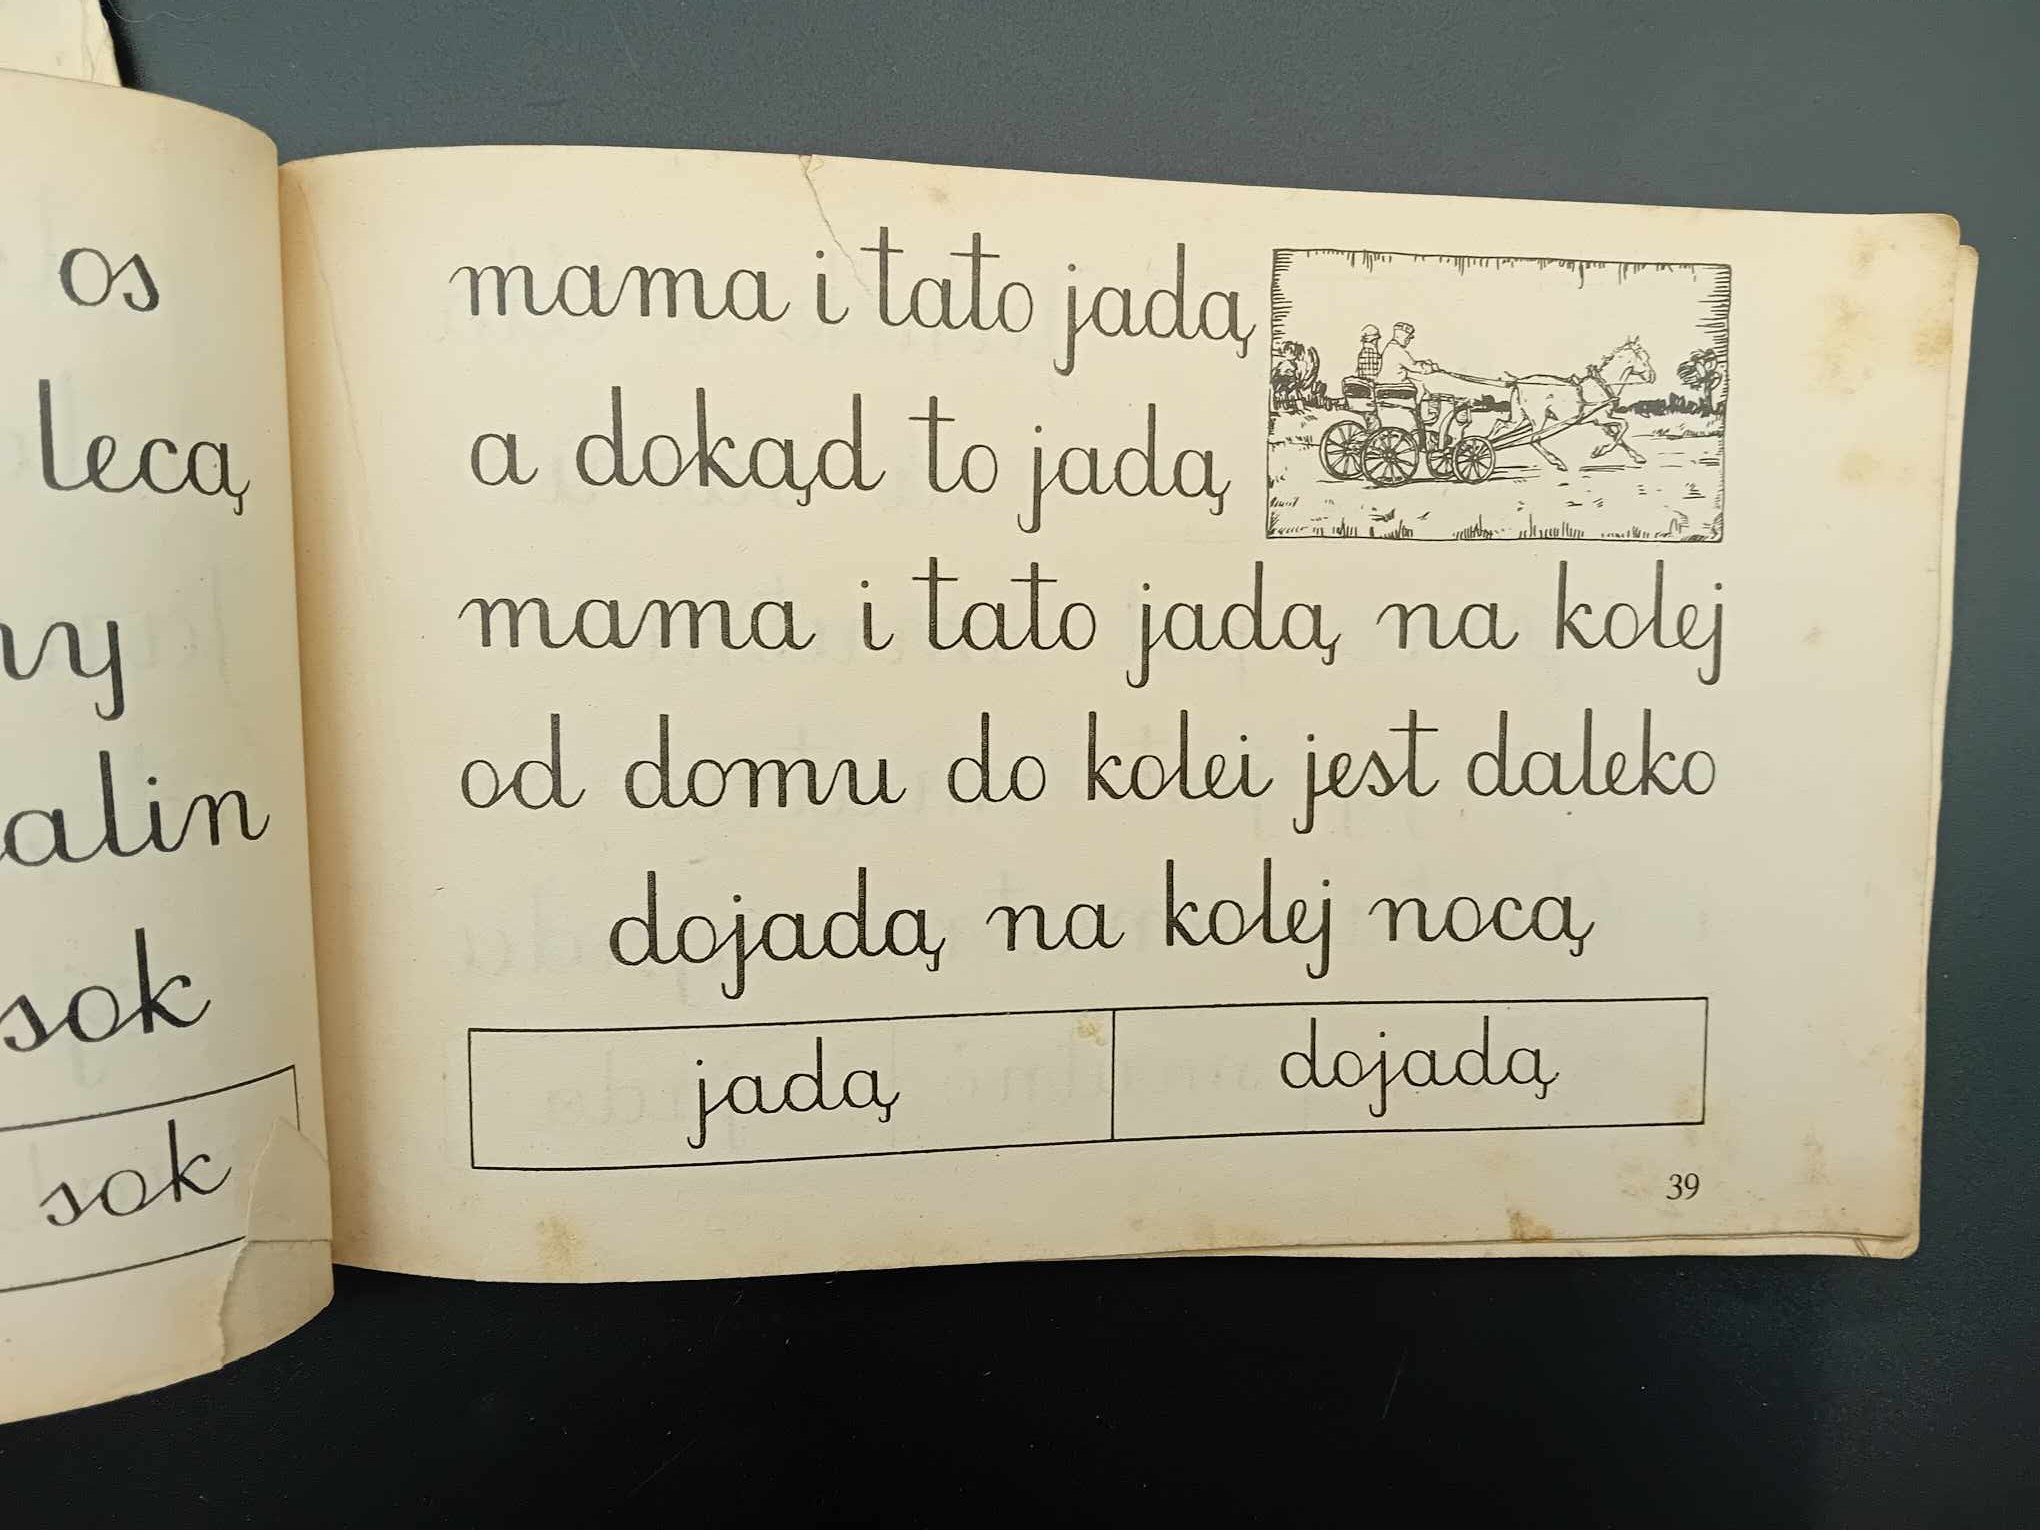 os
lecą
sok
sok
mama i tato jadą
a dokąd to jadą
mama i tato jadą na kolej
od domu do kolei jest daleko
dojadą na kolej nocą
jadą dojadą
39